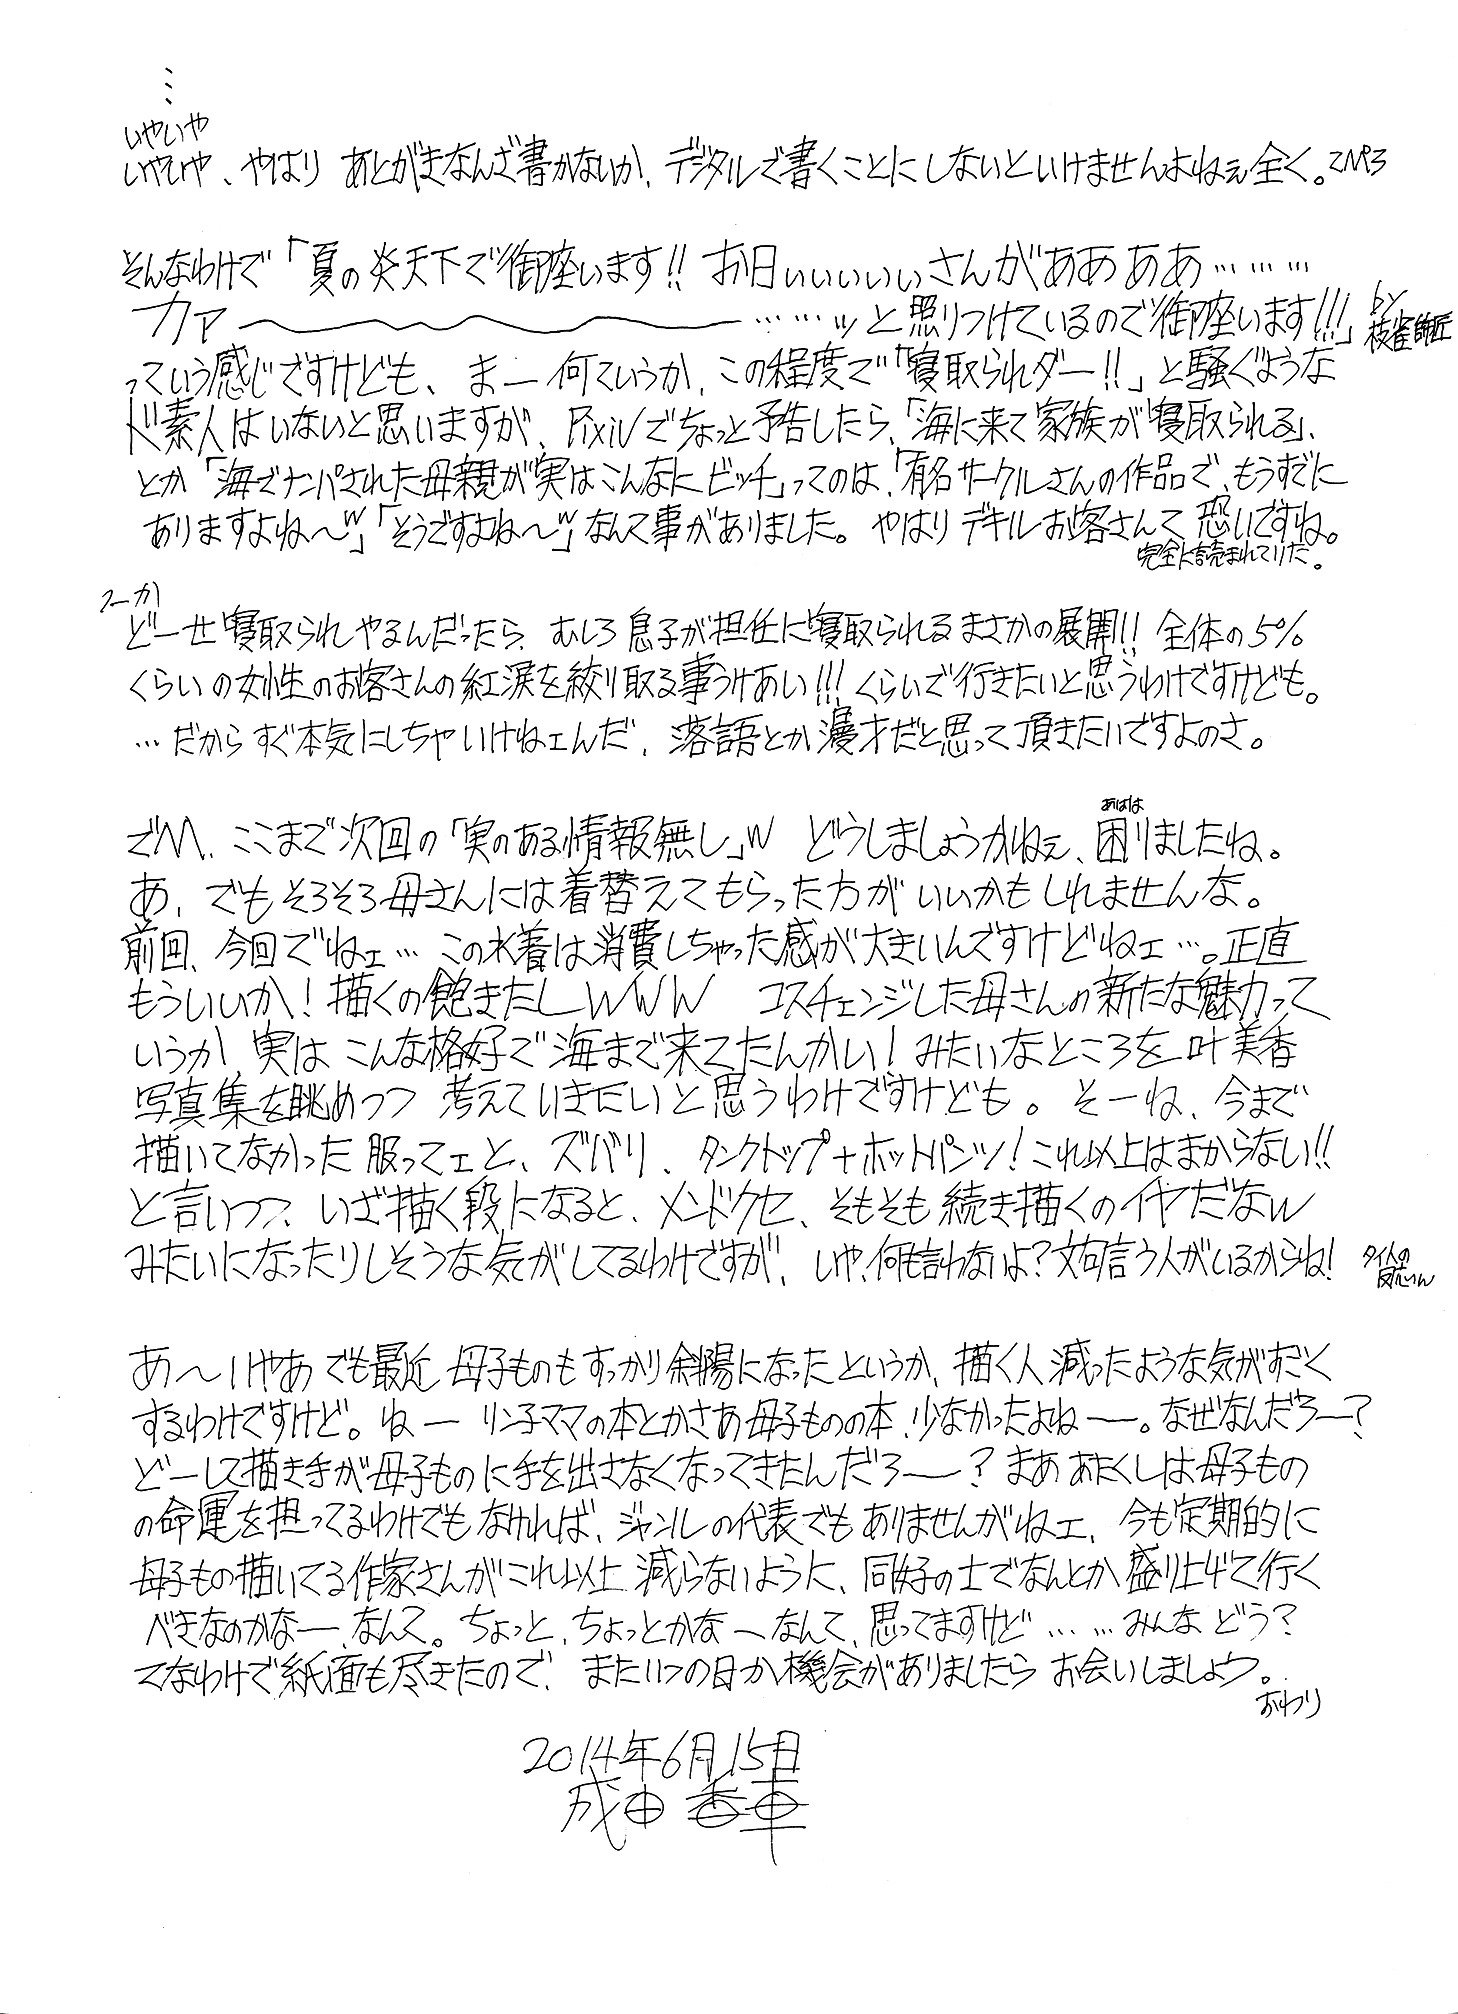 …
いやいや
いやいや、やはり あとがきなんざ書かないか、デジタルで書くことにしないといけませんよねぇ全く。
そんなわけで「夏の炎天下で御座います!! お日ぃぃぃぃぃさんがああああ………
カァ〜〜〜〜〜……ッと照りつけているので御座います!!!」by枝雀師匠
っていう感じですけども、まー何ていうか、この程度で「寝取られダー!!」と騒ぐような
ド素人はいないと思いますが、Pixivでちょっと予告したら、「海に来て家族が寝取られる」、
とか「海でナンパされた母親が実はこんなにビッチ」ってのは、「有名サークルさんの作品で、もうすでに
ありますよね〜w」「そうですよね〜w」なんて事がありました。やはりデキルお客さんて恐いですね。
完全に読まれてりた。
つーか
どーせ寝取られやるんだったら、むしろ息子が担任に寝取られるまさかの展開!! 全体の5%
くらいの女性のお客さんの紅涙を絞り取る事うけあい!!! くらいで行きたいと思うわけですけども。
…だからすぐ本気にしちゃいけねェんだ、落語とか漫才だと思って頂きたいですよのさ。
でハ、ここまで次回の「実のある情報無し」w どうしましょうかねぇ、困りましたね。
あはは
あ、でもそろそろ母さんには着替えてもらった方がいいかもしれませんな。
前回、今回でねェ…この水着は消費しちゃった感が大きいんですけどねェ…。正直
もういいか！描くの飽きたしwww コスチェンジした母さんの新たな魅力って
いうか、実はこんな格好で海まで来てたんかい！みたいなところを叶美香
写真集を眺めつつ 考えていきたいと思うわけですけども。そーね、今まで
描いてなかった服ってェと、ズバリ、タンクトップ+ホットパンツ！これ以上はまからない!!
と言いつつ、いざ描く段になると、メンドクセ、そもそも続き描くのイヤだなw
みたいになったりしそうな気がしてるわけですが、いや、何も言わないよ？文句言う人がいるからね！
あ〜いやあでも最近 母子ものもすっかり斜陽になったというか、描く人減ったような気がすごく
するわけですけど。ねー リン子ママの本とかさあ母子ものの本、少なかったよねー。なぜなんだろー？
どーして描き手が母子ものに手を出さなくなってきたんだろー？まああたくしは母子もの
の命運を担ってるわけでもなければ、ジャンルの代表でもありませんがねェ、今も定期的に
母子もの描いてる作家さんがこれ以上減らないように、同好の士でなんとか盛り上げて行く
べきなのかなー、なんて。ちょっと、ちょっとかなーなんて、思ってますけど……みんなどう？
てなわけで紙面も尽きたので、またいつの日か機会がありましたらお会いしましょう。
おわり
2014年6月15日
成田香車